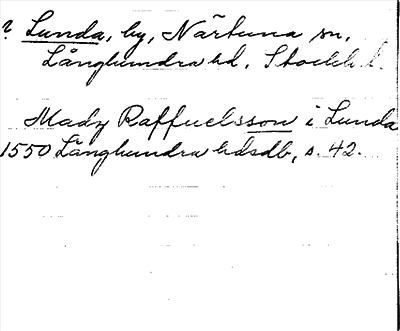 ? Lunda, by, Närtuna sn.
Långhundra hd. Stockh. l.
Madz Raffuelsson i Lunda
1550 Långhundra hdsdb, s. 42.